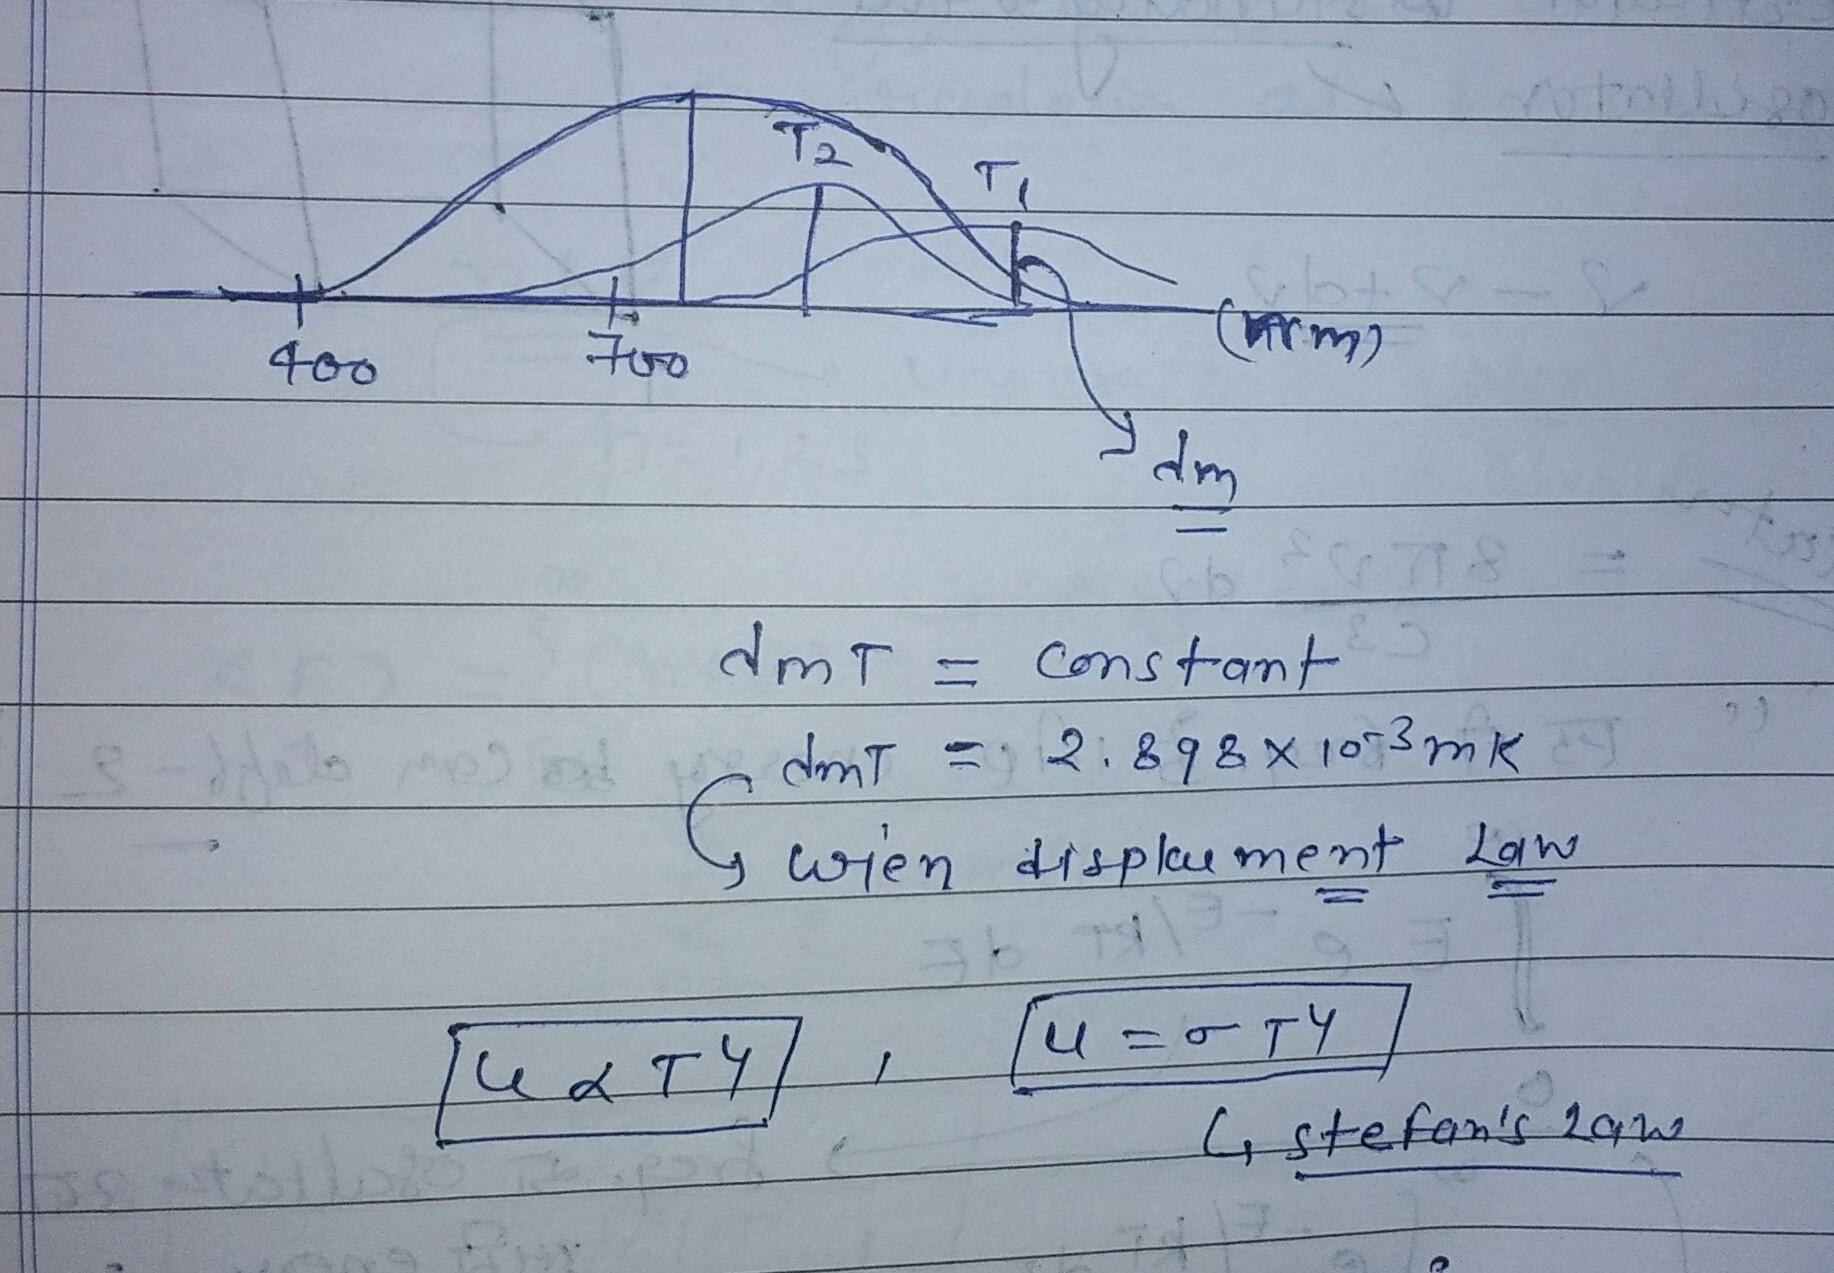 T2
T1
400 700 (nm)
dm
dmT = constant
dmT = 2.898 x 10-3 mK
wien displacement Law
u α T4 , u = σ T4
stefan's Law